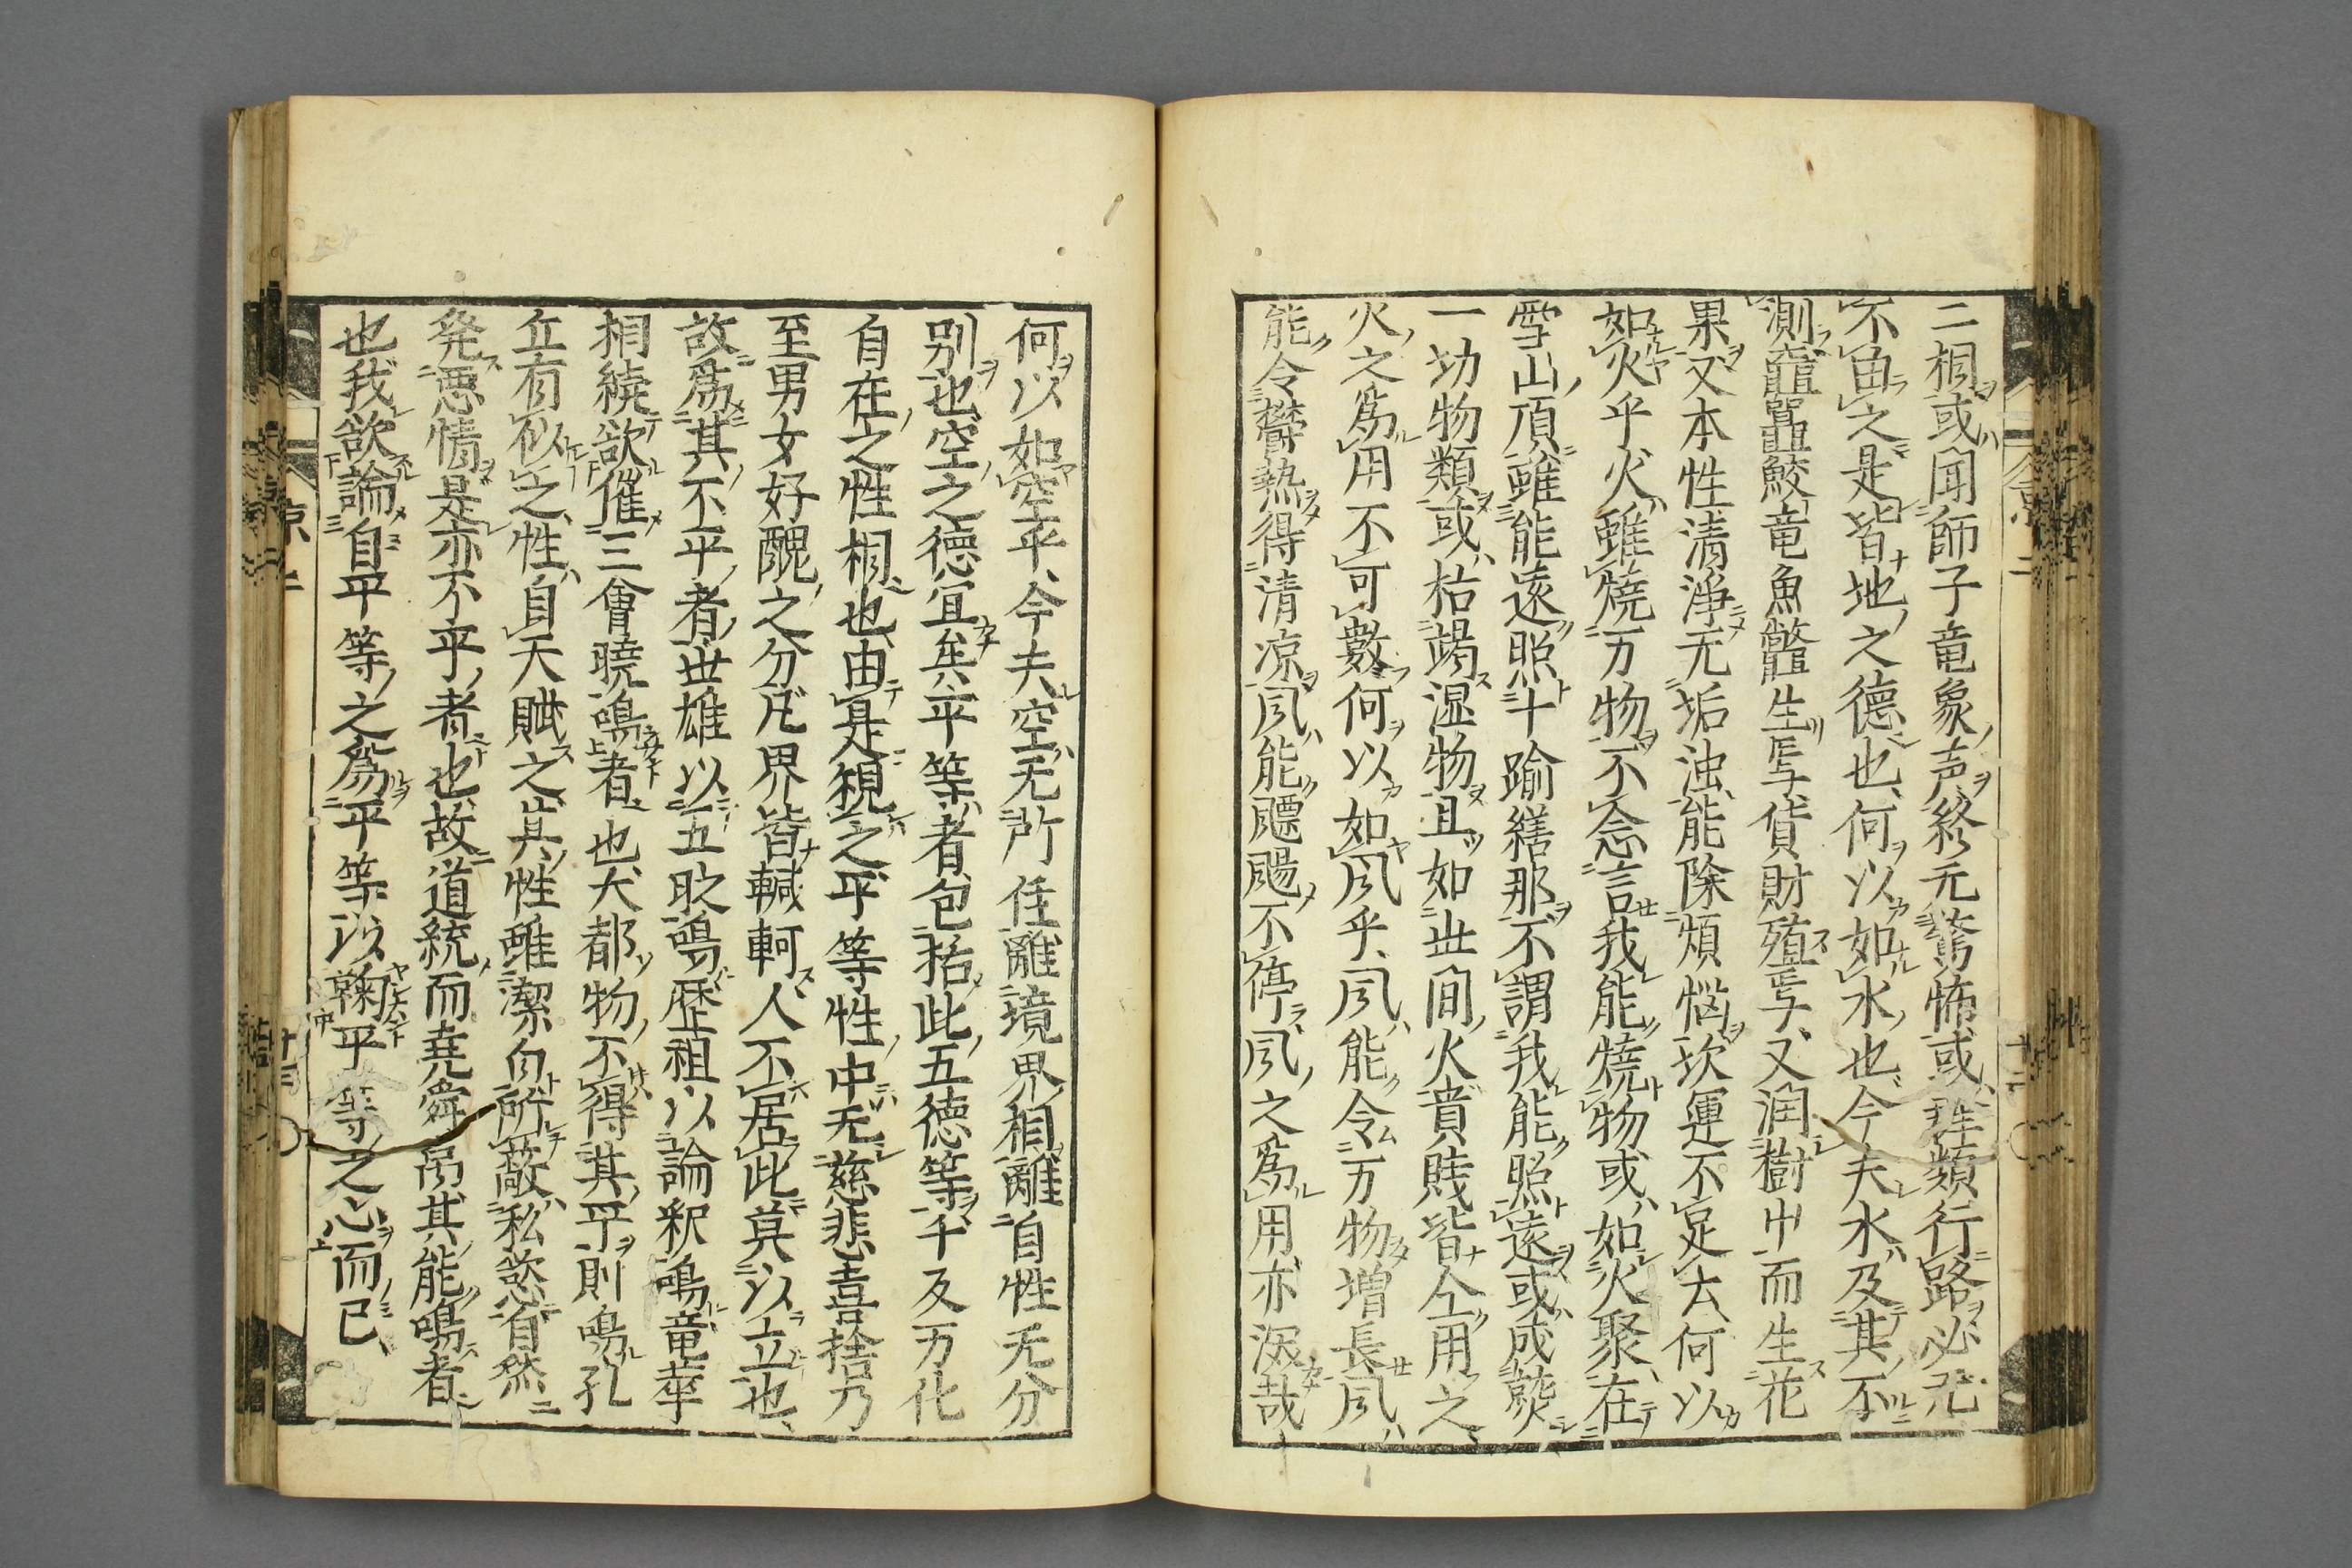 二相或聞師子竜象声終无驚怖或非類行路必无
不由之是皆地之德也何以如水也今夫水及其不
測黿鼉鮫竜魚鼈生焉貨財殖焉又潤樹中而生花
果又本性清淨无垢浊能除煩悩坎運不足去何以
如火乎火雖焼万物不念言我能焼物或如火聚在
雪山頂雖能遠照十踰繕那不謂我能照遠或成熟
一切物類或枯竭湿物且如世間火貴賎皆今用之
火之為用不可數何以如风乎风能令万物増長风
能令欝熱得清凉风能飃颺不停风之為用亦深哉
何以如空乎今夫空无所住離境界相離自性无分
別也空之徳宜矣平等者包括此五徳等千反万化
自在之性相也由是視之平等性中无慈悲喜捨乃
至男女好醜之分凡界皆轗軻人不居此莫以立也
故為其不平者世雄以五畞鳴歴祖以論釈鳴竜華
相繞欲催三會暁鳴者也大都物不得其平則鳴孔
丘有似之性自天賦之其性雖潔白所蔽私慾自然
発悪情是亦不平者也故道統而堯舜禹其能鳴者
也我欲論自平等之為平等以鞠平等之心而已